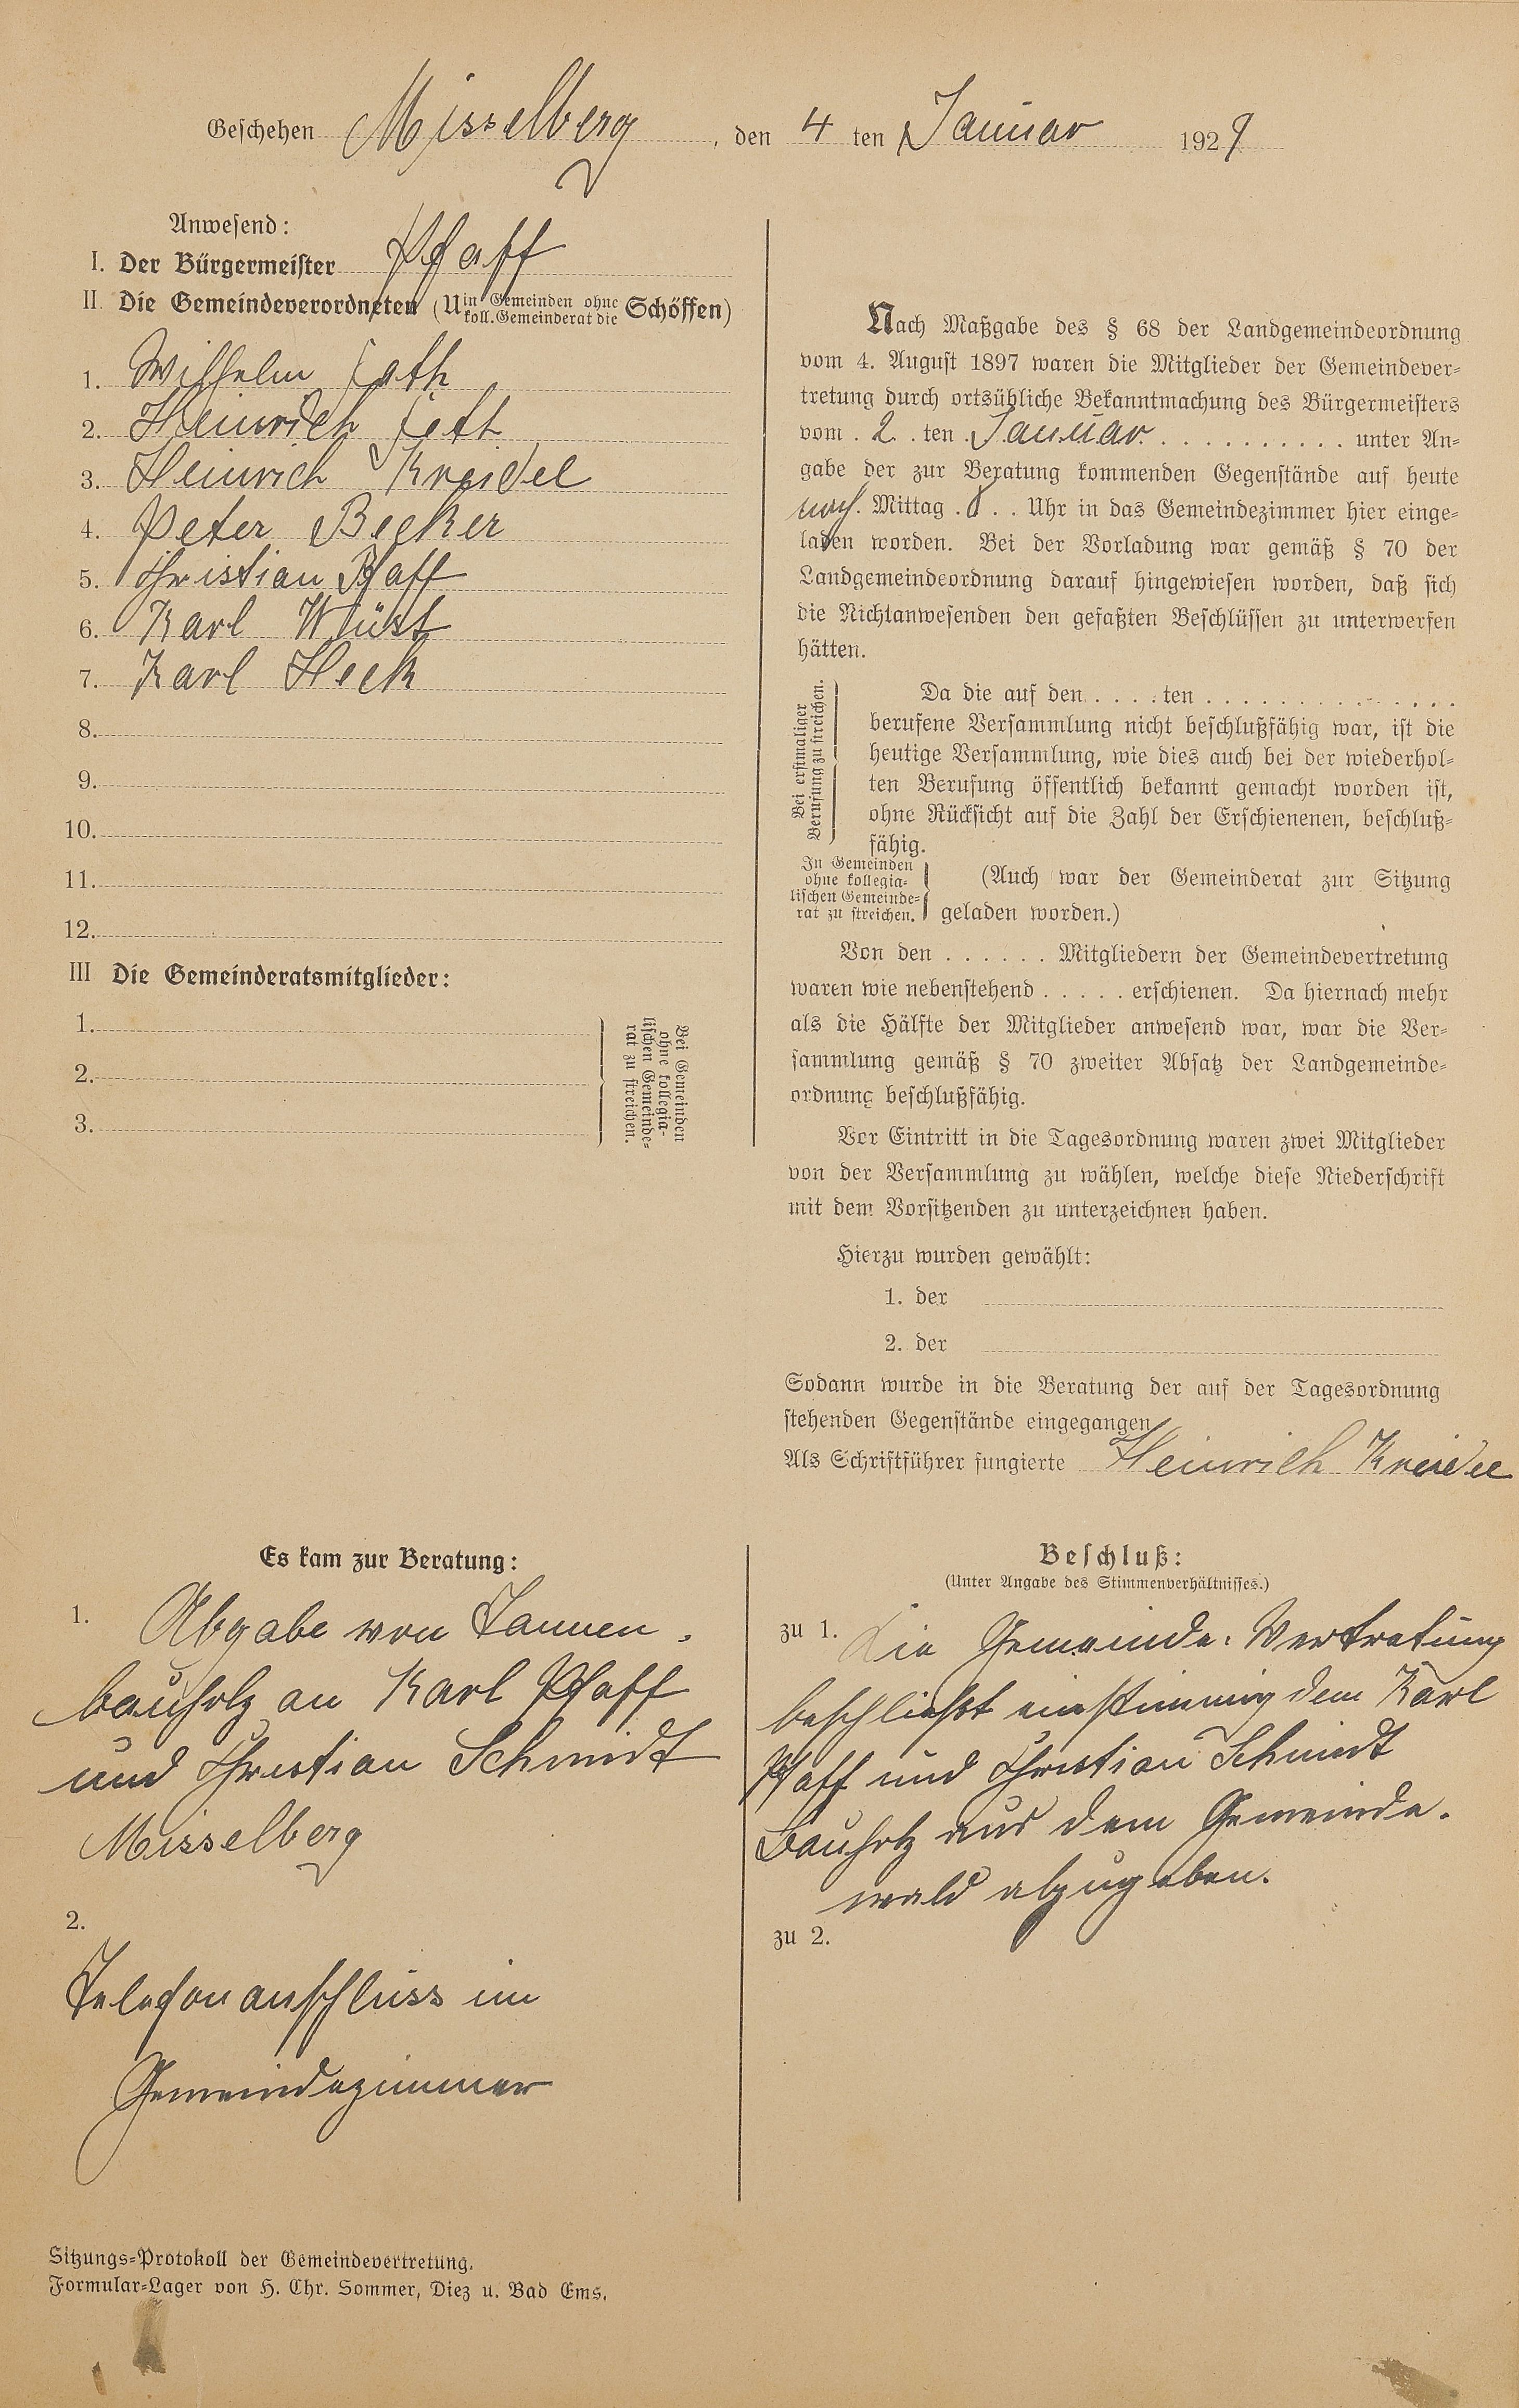 Geschehen Misselberg, den 4 ten Januar 1929
Anwesend:
I. Der Bürgermeister Pfaff
II. Die Gemeindeverordneten (U in Gemeinden ohne koll. Gemeinderat die Schöffen)
1. Wilhelm
2. Heinrich
3. Heinrich Kreidel
4. Peter Becker
5. Christian Pfaff
6. Karl Wüst
7. Karl Heck
8.
9.
10.
11.
12.
III Die Gemeinderatsmitglieder:
1.
2.
3.
Bei Gemeinden
ohne kollegia-
lischen Gemeinde-
rat zu streichen.
Nach Maßgabe des § 68 der Landgemeindeordnung
vom 4. August 1897 waren die Mitglieder der Gemeindever-
tretung durch ortsübliche Bekanntmachung des Bürgermeisters
vom 2. ten Januar. unter An-
gabe der zur Beratung kommenden Gegenstände auf heute
nach. Mittag 8 Uhr in das Gemeindezimmer hier einge-
laden worden. Bei der Vorladung war gemäß § 70 der
Landgemeindeordnung darauf hingewiesen worden, daß sich
die Nichtanwesenden den gefaßten Beschlüssen zu unterwerfen
hätten.
Bei erstmaliger
Berufung zu streichen.
Da die auf den . . . . ten . . . . . . . . . . . . . .
berufene Versammlung nicht beschlußfähig war, ist die
heutige Versammlung, wie dies auch bei der wiederhol-
ten Berufung öffentlich bekannt gemacht worden ist,
ohne Rücksicht auf die Zahl der Erschienenen, beschluß-
fähig.
In Gemeinden
ohne kollegia-
lischen Gemeinde-
rat zu streichen.
(Auch war der Gemeinderat zur Sitzung
geladen worden.)
Von den . . . . . . Mitgliedern der Gemeindevertretung
waren wie nebenstehend . . . . . erschienen. Da hiernach mehr
als die Hälfte der Mitglieder anwesend war, war die Ver-
sammlung gemäß § 70 zweiter Absatz der Landgemeinde-
ordnung beschlußfähig.
Vor Eintritt in die Tagesordnung waren zwei Mitglieder
von der Versammlung zu wählen, welche diese Niederschrift
mit dem Vorsitzenden zu unterzeichnen haben.
Hierzu wurden gewählt:
1. der
2. der
Sodann wurde in die Beratung der auf der Tagesordnung
stehenden Gegenstände eingegangen
Als Schriftführer fungierte Heinrich Kreidel
Es kam zur Beratung:
1. Abgabe von Tannen-
bauholz an Karl Pfaff
und Christian Schmidt
Misselberg
2.
Telefonanschluss im
Gemeindezimmer
Beschluß:
(Unter Angabe des Stimmenverhältnisses.)
zu 1. Die Gemeinde-Vertretung
beschließt einstimmig dem Karl
Pfaff und Christian Schmidt
Bauholz aus dem Gemeinde-
wald abzugeben.
zu 2.
Sitzungs-Protokoll der Gemeindevertretung.
Formular-Lager von H. Chr. Sommer, Diez u. Bad Ems.